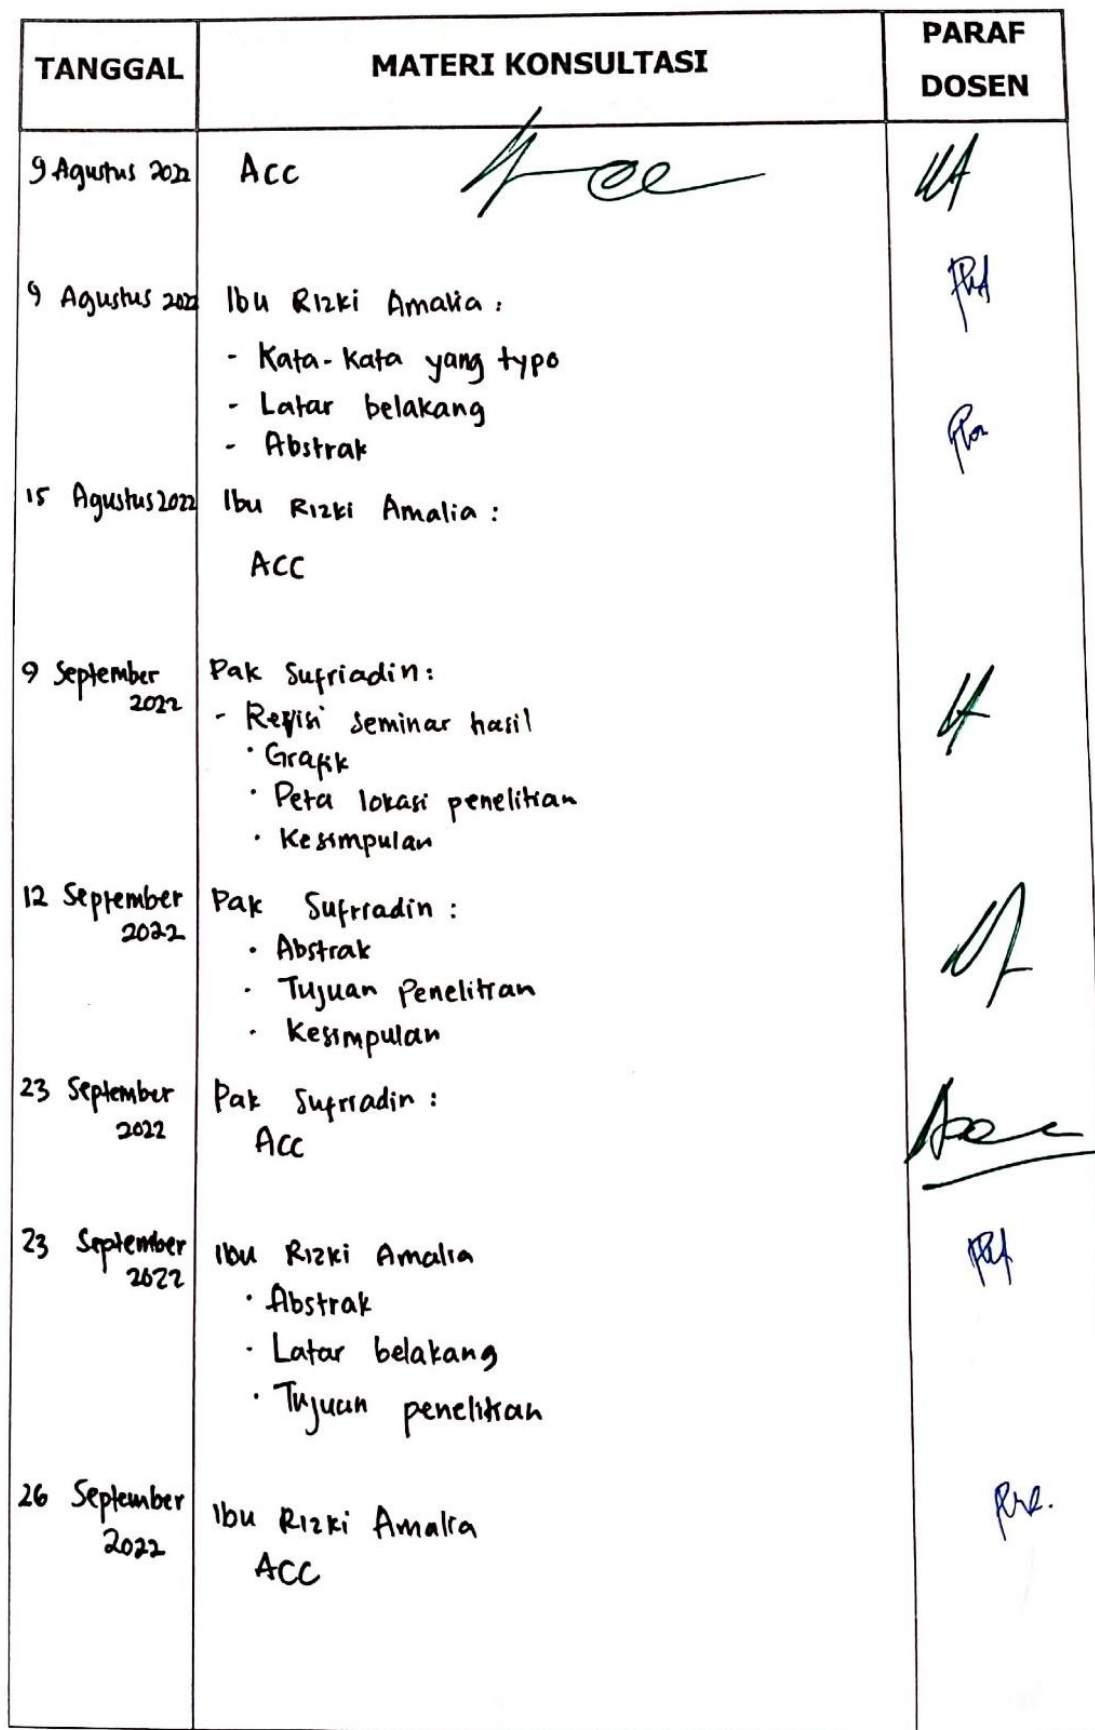 TANGGAL MATERI KONSULTASI PARAF
DOSEN
9 Agustus 2022 Acc
9 Agustus 2022 Ibu Rizki Amalia :
- Kata-kata yang typo
- Latar belakang
- Abstrak
15 Agustus 2022 Ibu Rizki Amalia :
ACC
9 September
2022
Pak Sufriadin :
- Revisi seminar hasil
· Grafik
· Peta lokasi penelitian
· Kesimpulan
12 September
2022
Pak Sufriadin :
· Abstrak
· Tujuan Penelitian
· Kesimpulan
23 September
2022
Pak Sufriadin :
Acc
23 September
2022
Ibu Rizki Amalia
· Abstrak
· Latar belakang
· Tujuan penelitian
26 September
2022
Ibu Rizki Amalia
ACC